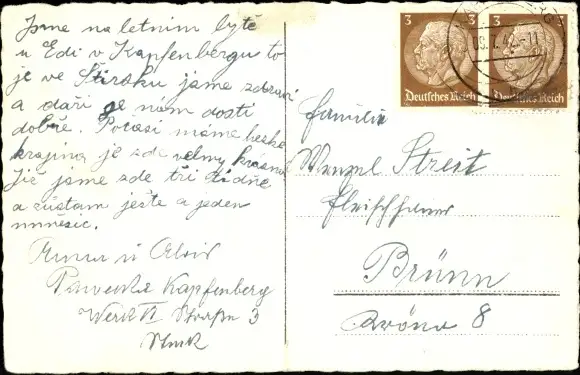 Jsme na letním bytě
u Edi v Kapfenbergu to
je ve Štirsku jsme zdraví
a daří se nám dosti
dobře. Počasí máme heské
krajina je zde velmy krásná
Již jsme zde tři tídně
a zůstam ješte a jeden
mněsíc.
Kapfenberg
Werk VI Straße 3
Stmk
3 3
Deutsches Reich
3
Deutsches Reich
Familie
Wenzel Streit
Fleischhauer
Brünn
8